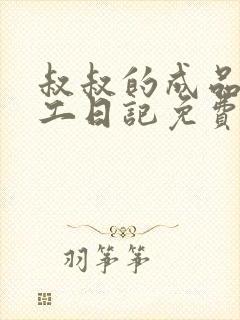 叔叔的成品
工日記免費
羽筝筝